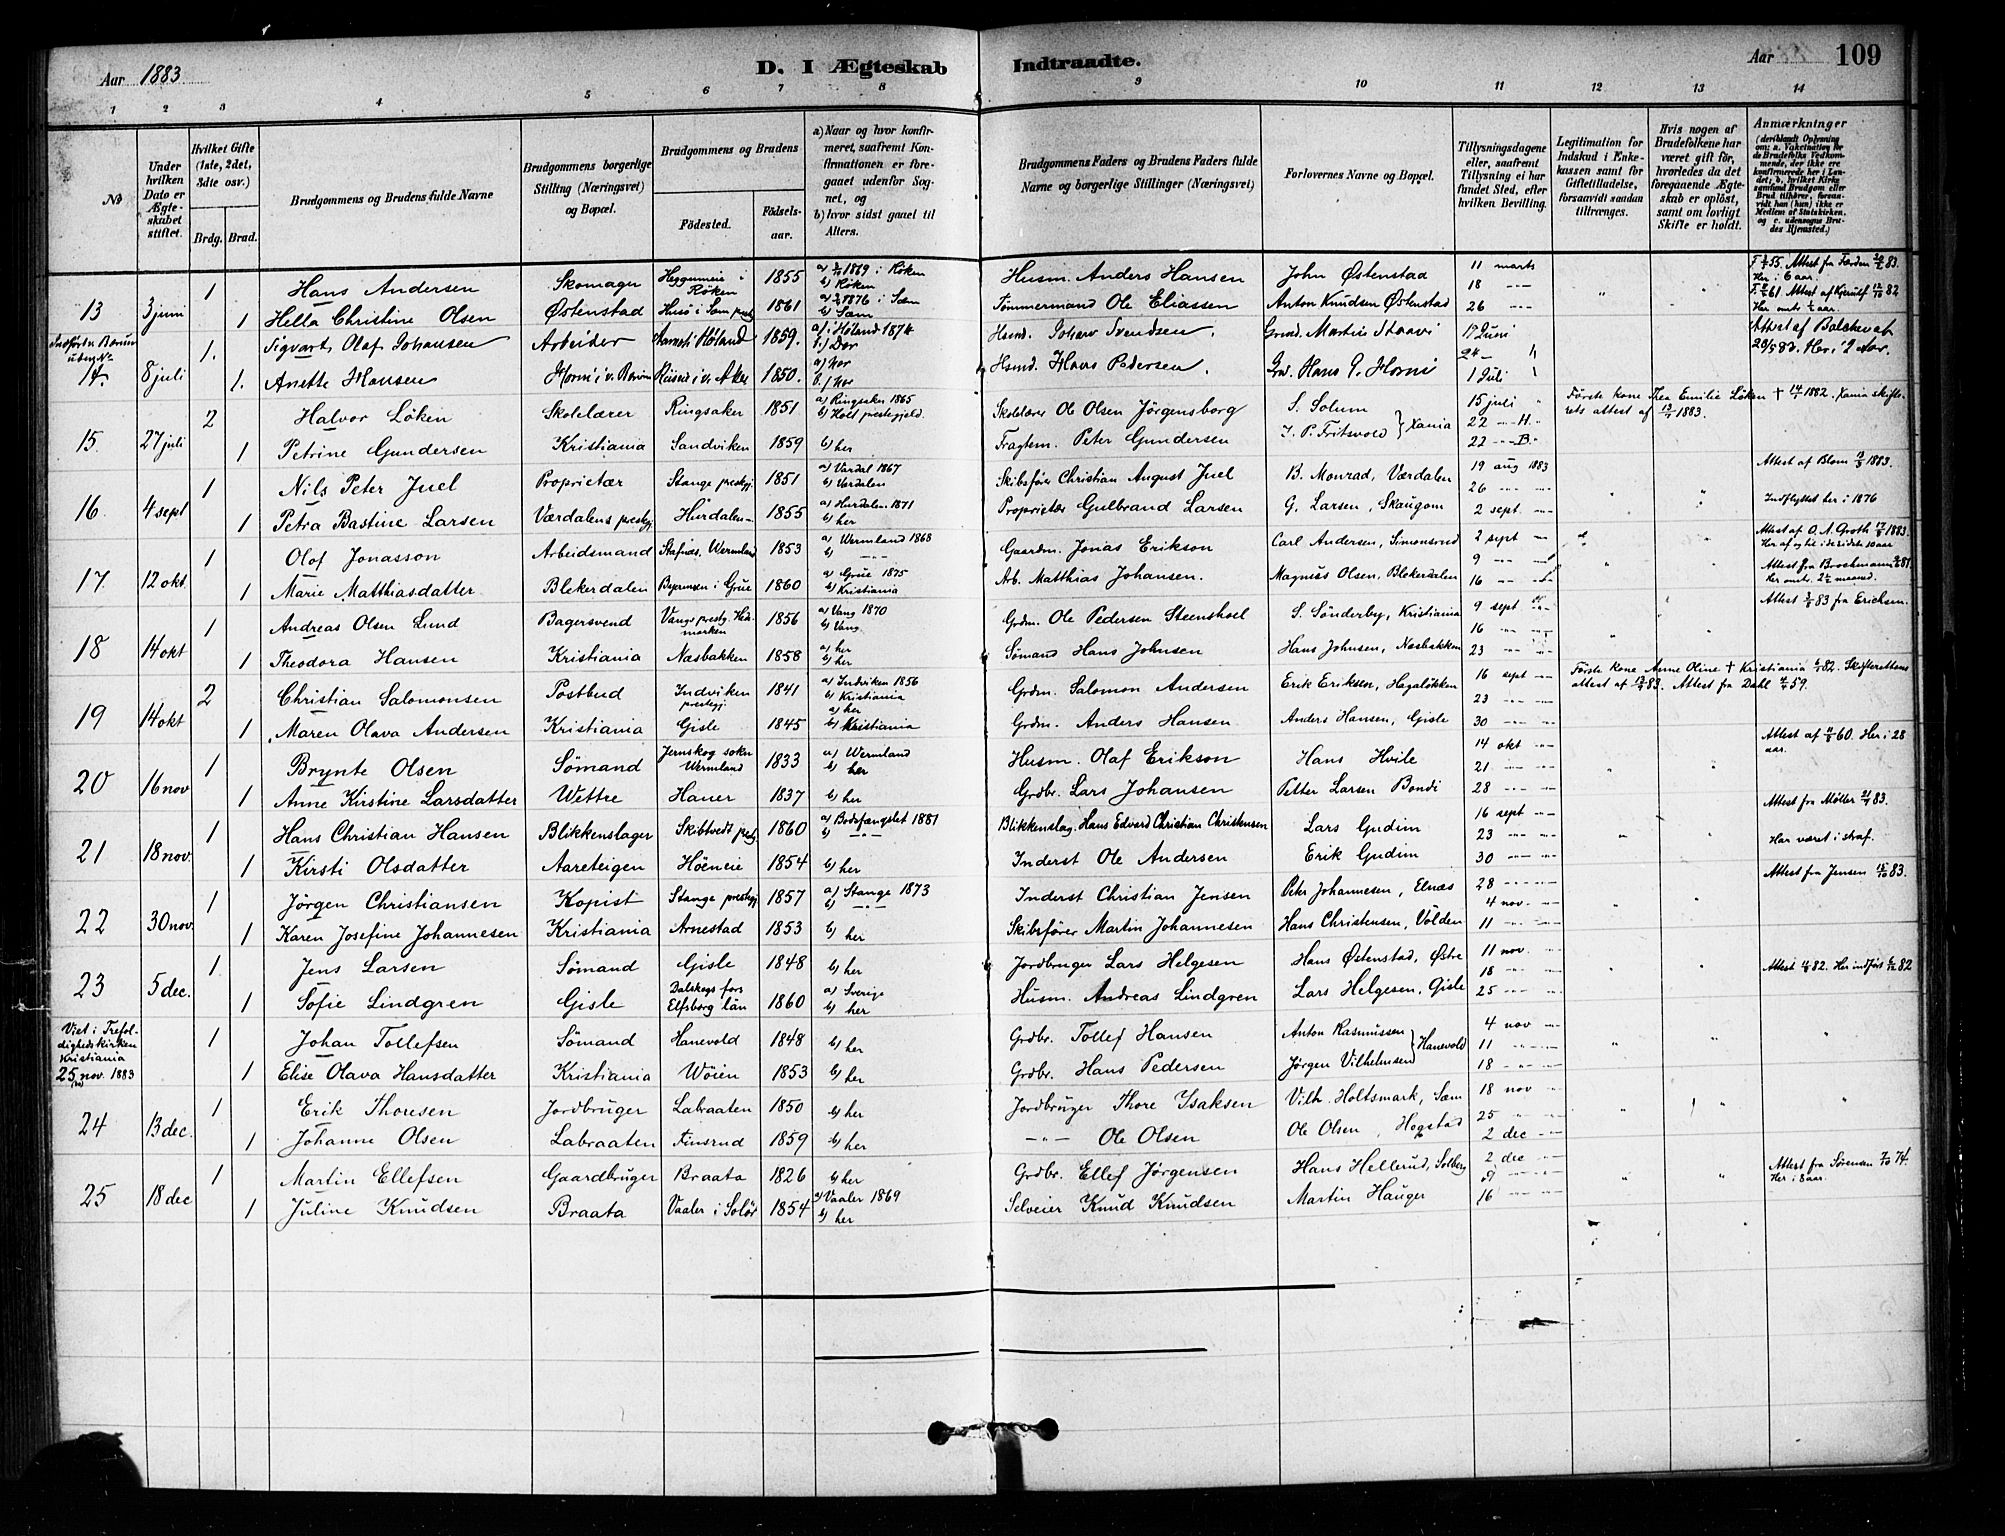 Aar 1883.
D. I Ægteskab
Indtraadte.
Aar
109
1 2 3 4 5 6 7 8 9 10 11 12 13 14
No
Under hvilken Dato er Ægteskabet stiftet.
Hvilket Gifte (1ste, 2det, 3die osv.)
Brdg. Brud.
Brudgommens og Brudens fulde Navne
Brudgommens borgerlige Stilling (Næringsvei) og Bopæl.
Brudgommens og Brudens
Fødested.
Fødselsaar.
a) Naar og hvor konfirmeret, saafremt Konfirmationen er foregaaet udenfor Sognet, og
b) hvor sidst gaaet til Alters.
Brudgommens Faders og Brudens Faders fulde Navne og borgerlige Stillinger (Næringsvei)
Forlovernes Navne og Bopæl.
Tillysningsdagene eller, saafremt Tillysning ei har fundet Sted, efter hvilken Bevilling.
Legitimation for Indskud i Enkekassen samt for Giftetilladelse, forsaavidt saadan tiltrænges.
Hvis nogen af Brudefolkene har været gift før, hvorledes da det foregaaende Ægteskab er opløst, samt om lovligt Skifte er holdt.
Anmærkninger
13 3 juni 1 Hans Andersen Skomager Heggumeie i Røken 1855 a) 1869 i Røken b) Røken Husm. Anders Hansen John Østenstad 11 marts Attest fra Færden 83. Her i 6 aar.
1 Hella Christine Olsen Østenstad Husø i Sem prestg 1861 a) 1876 i Sem b) Sem Tømmermand Ole Eliassen Anton Knudsen Østenstad 18 26 Attest af Kjerulf 82 Her omtr. 1/2 aar.
14. 8 juli 1. Sigvart Olaf Johansen Arbeider Høland 1859. a) i Høland 1874 b) Der Husmd. Johan Svendsen. Grmd. Martin 17 Juni 24 Attest af 83. Her i 2 Aar.
1. Anette Hansen Horni i v. Bærum v. Aker 1850. a) her b) her Husmd. Hans Pedersen. Hans P. Horni 1 Juli
15 27 juli 2 Halvor Løken Skolelærer Ringsaker 1851 a) Ringsaker 1865 b) Hoel prestegjeld. Skolelærer Ole Olsen Jørgensborg S. Solum 15 juli Første kone Thea Emilie Løken † 1882. Xania skifterets attest af 1883.
1 Petrine Gundersen Kristiania Sandviken 1859 b) her Fragtem. Peter Gundersen J. P. Fritsvold Xania 22 H. 22 B.
16 4 sept 1 Nils Peter Juel Proprietær Stange prestgj 1851 a) Vardal 1867 b) Værdalen Skibsfører Christian August Juel B. Monrad, Værdalen 19 aug 1883 26 Attest af Blom 1883.
1 Petra Bastine Larsen Værdalens prestgj. Hurdalen 1855 a) Hurdalen 1871 b) her Proprietær Gulbrand Larsen G. Larsen, Skaugum 2 sept Indflyttet her i 1876
17 12 okt 1 Olof Jonasson Arbeidsmand Stafnæs, Wermland 1853 a) Wermland 1868 b) Gaardm. Jonas Erikson Carl Andersen, Simonsrud 2 sept 9 Attest af O. A. Groth 1883. Her af og til i de sidste 10 aar
1 Marie Matthiasdatter Blekerdalen i Grue 1860 a) Grue 1875 b) Kristiania Arb. Matthias Johansen. Magnus Olsen, Blekerdalen 16 Attest fra Brochmann 81. Her omtr. 2½ maaned.
18 14 okt 1 Andreas Olsen Lund Bagersvend Vangs prestg. Hedemarken 1856 a) Vang 1870 b) Vang Grdm. Ole Pedersen Steenshoel S. Sönderby, Kristiania 9 sept 16 Attest 83 fra Erichsen.
1 Theodora Hansen Kristiania Næsbakken 1858 a) her b) her Sömand Hans Johnsen Hans Johnsen, Næsbakken 23
19 14 okt 2 Christian Salomonsen Postbud Indviken prestegj. 1841 a) Indviken 1856 b) Kristiania Grdm. Salomon Andersen Erik Eriksen, Hagaløkken 16 sept 23 Første kone Anne Oline † Kristiania 82. Skifterettens attest af 83. Attest fra Dahl 59.
1 Maren Olava Andersen Kristiania Gisle 1845 a) her b) Kristiania Grdm. Anders Hansen Anders Hansen, Gisle 30
20 16 nov 1 Brynte Olsen Sömand Jernskog sokn Wermland 1833 a) Wermland b) her Husm. Olaf Erikson Hans Hvile 14 okt 21 Attest af 60. Her i 28 aar.
1 Anne Kirstine Larsdatter Wettre Hauer 1837 b) her Grdbr. Lars Johansen Petter Larsen Bondi 28
21 18 nov. 1 Hans Christian Hansen Blikkenslager Skibtvedt prestg 1860 a) Bodsfængslet 1881 b) Blikkenslag. Hans Edvard Christian Christensen Lars Gudim 16 sept 23 Attest fra Møller 83.
1 Kirsti Olsdatter Aareteigen Höeneie 1854 b) her Inderst Ole Andersen Erik Gudim 30 Har været i straf.
22 30 nov. 1 Jörgen Christiansen Kopist Stange prestegj 1857 a) Stange 1873 b) Inderst Christian Jensen Peter Johannesen, Elnæs 28 4 nov. Attest fra Jensen 83.
1 Karen Josefine Johannesen Kristiania Arnestad 1853 b) her Skibsfører Martin Johannesen Hans Christensen, Volden 11
23 5 dec. 1 Jens Larsen Sömand Gisle 1848 b) her Jordbruger Lars Helgesen Hans Østenstad, Østre 11 nov. 18 Attest 82. Her indført 82
1 Sofie Lindgren Gisle Dalskogs fors Elfsborg län 1860 a) Sverige b) her Husm. Andreas Lindgren Lars Helgesen, Gisle 25
Viet i Trefoldighedskirken Kristiania 25 nov. 1883 1 Johan Tollefsen Sömand Hanevold 1848 b) her Grdbr. Tollef Hansen Anton Rasmussen 4 nov 11
1 Elise Olava Hansdatter Kristiania Wöien 1853 b) her Grdbr. Hans Pedersen Jörgen Vilhelmsen Hanevold 18
24 13 dec. 1 Erik Thoresen Jordbruger Labraaten 1850 b) her Jordbruger Thore Ysaksen Vilh. Holtsmark, Sem 18 nov 25
1 Johanne Olsen Labraaten Finsrud 1859 b) her Ole Olsen Ole Olsen, Hogstad 2 dec
25 18 dec 1 Martin Ellefsen Gaardbruger Braata 1826 b) her Grdbr. Ellef Jörgensen Hans Hellerud, Solberg 2 dec 9 Attest fra Sørensen 74. Her i 8 aar.
1 Juline Knudsen Braata Vaaler i Solör 1854 a) Vaaler 1869 b) her Selveier Knud Knudsen Martin Hauger 16